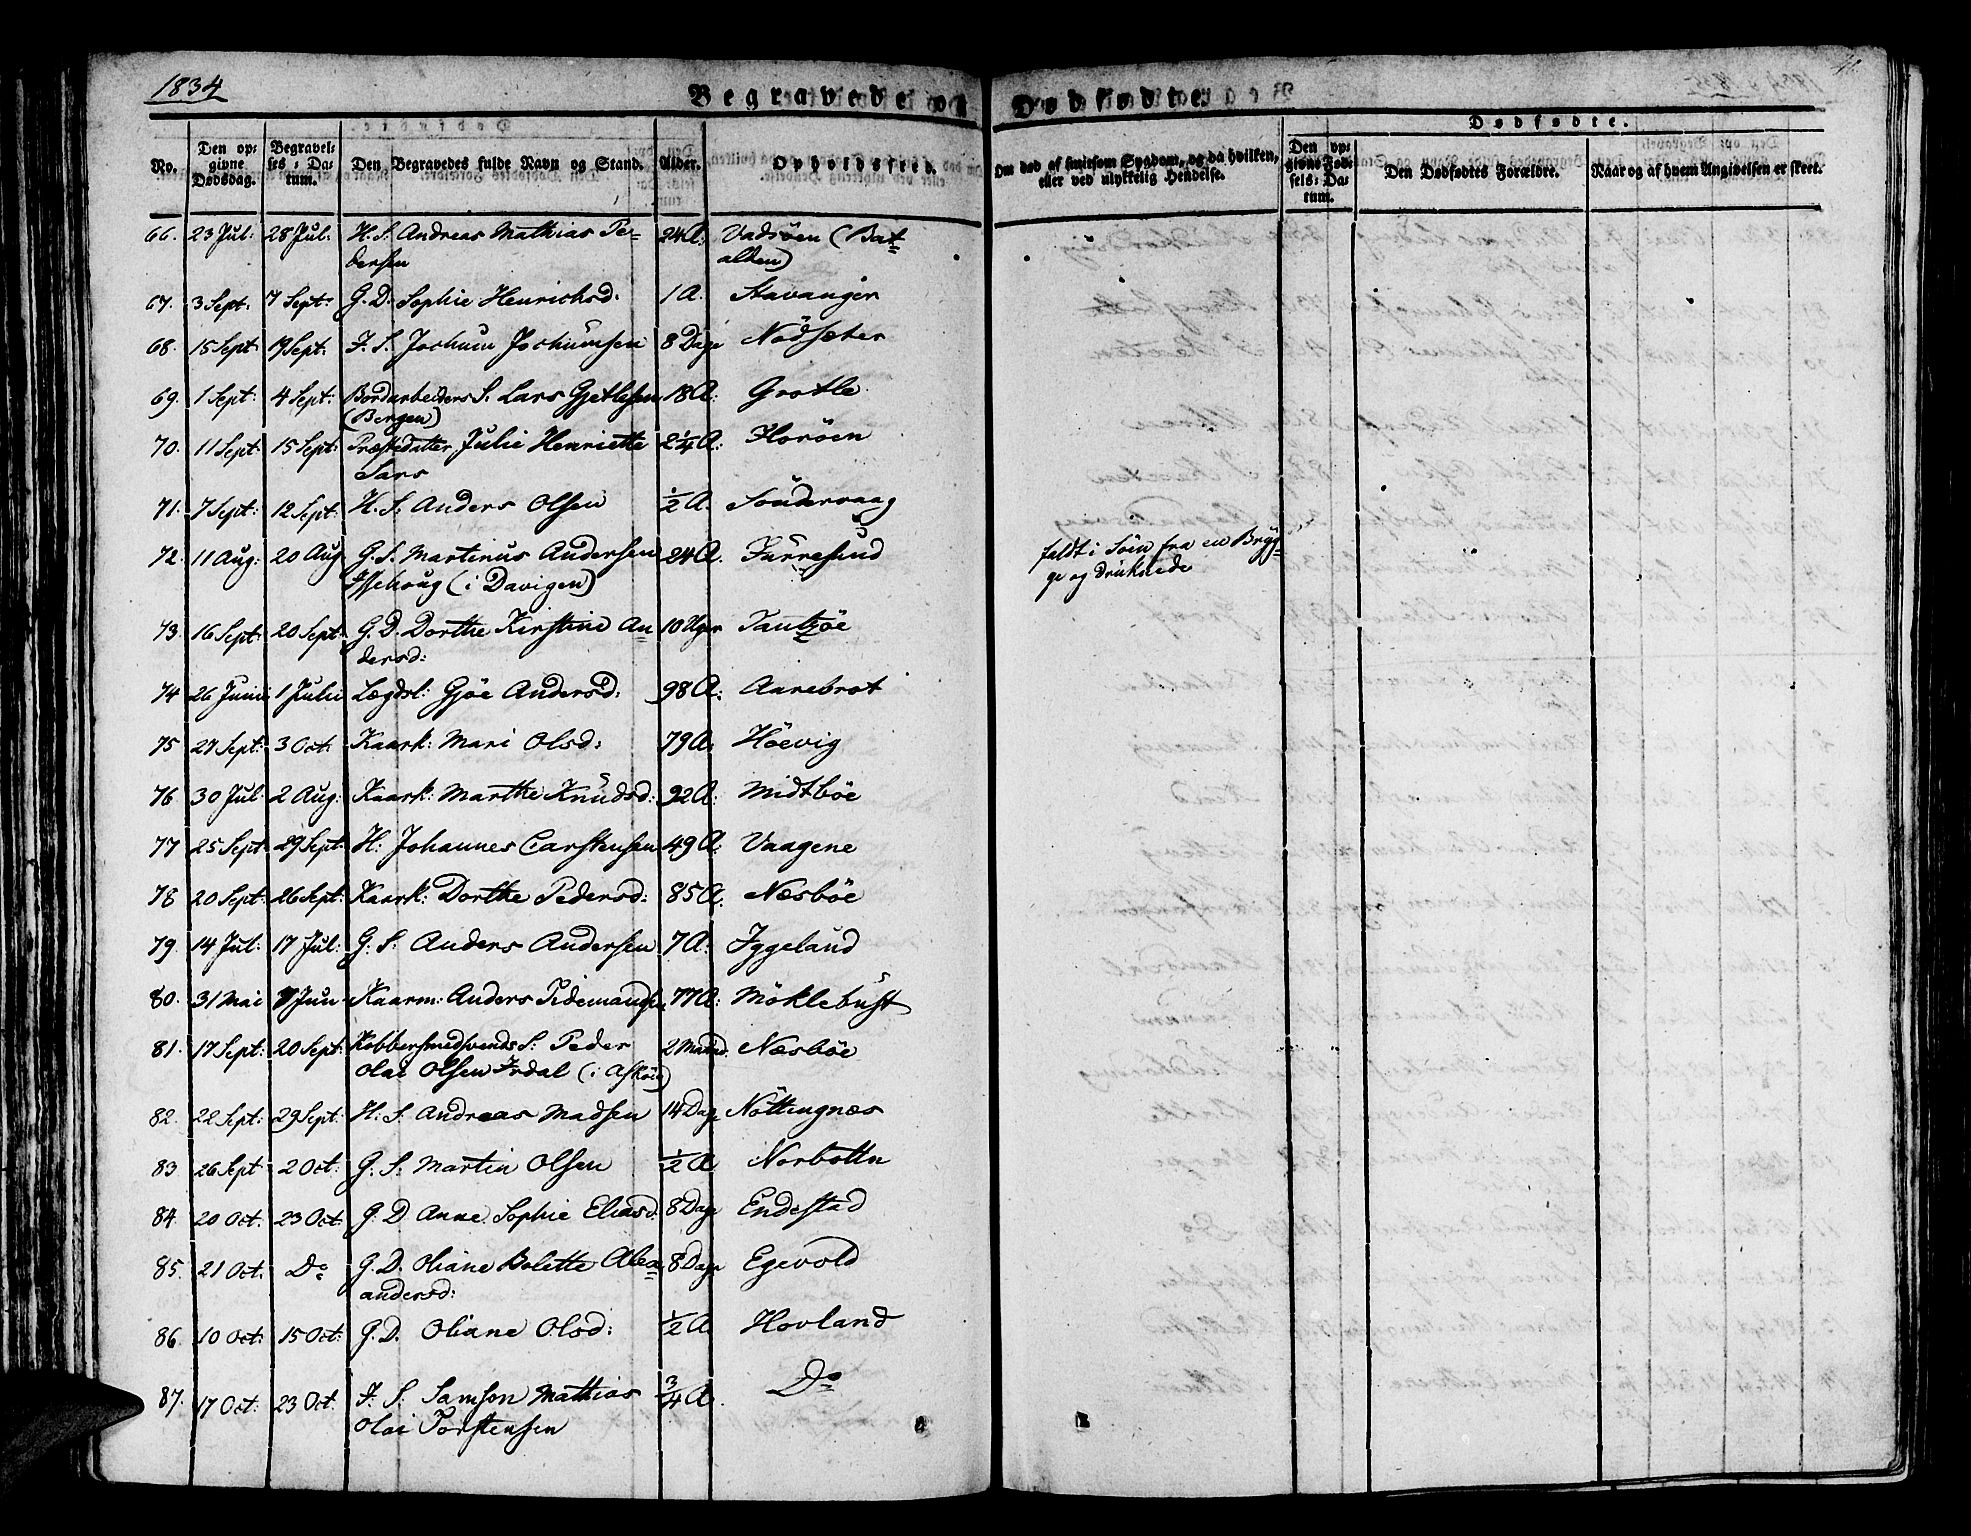 1834
Begravede og Dødfødte.
No.
Den opgivne Dødsdag.
Begravelses-Datum.
Den Begravedes fulde Navn og Stand.
Alder.
Opholdssted.
Om død af smitsom Sygdom, og da hvilken, eller ved ulykkelig Hendelse.
Dødfødte.
Den opgivne Fødsels-Datum.
Den Dødfødtes Forældre.
Naar og af hvem Angivelsen er skeet.
66. 23 Jul: 28 Jul. H. S. Andreas Mathias Pe- 24 A: Vadsöen (Bat-
dersen alden)
67. 3 Sept. 7 Sept: G. D. Sophie Henrichsd: 1 A. Stavanger
68. 15 Sept 19 Sept. F. S. Jochum Jochumsen 8 Dage Nödsæter
69. 1 Sept: 4 Sept: Bordarbeiders S. Lars Gjetlesen 18 A: Grotle
(Bergen)
70. 11 Sept: 15 Sept: Præstedatter Julie Henriette 2 1/4 A: Floröen
Sars
71. 7 Sept: 12 Sept: H. S. Anders Olsen 1/2 A. Söndervaag
72. 11 Aug: 20 Aug G. S. Martinus Andersen 24 A. Furresund faldt i Söen fra en Bryg-
(i Davigen) ge og druknede
73. 16 Sept: 20 Sept: G. D. Dorthe Kirstine An- 10 Uger Tantzöe
dersd:
74 26 Junii 1 Julii Lægdsl: Gjöe Andersd: 98 A: Aarebrot
75 27 Sept: 3 Oct: Kaark: Mari Olsd: 79 A: Höevig
76 30 Jul: 2 Aug: Kaark: Marthe Knudsd: 92 A: Midtböe
77 25 Sept. 29 Sept. H: Johannes Carstensen 49 A: Vaagene
78 20 Sept. 26 Sept. Kaark: Dorthe Pedersd: 85 A. Næsböe
79. 14 Jul: 17 Jul: G. S: Anders Andersen 7 A: Iggeland
80. 31 Mai 7 Jun Kaarm: Anders Tidemands. 77 A: Möklebust
81. 17 Sept: 20 Sept: Kobbersmedsvends S: Peder 2 Maand. Næsböe
Olai Olsen Irdal (i Asköe)
82. 22 Sept: 29 Sept. H: S. Andreas Madsen 14 Dage Nöttingnæs
83 26 Sept 2 Oct: G. S: Martin Olsen 1/2 A Norbotn
84. 20 Oct. 23 Oct. G. D Anne Sophie Eliasd: 8 Dage Endestad
85. 21 Oct. Do G. D. Oliane Bolette Alex- 8 Dage Egevold
andersd:
86. 10 Oct: 15 Oct: G. D. Oliane Olsd: 1/2 A Hovland
87. 17 Oct: 23 Oct. F. S. Samson Mathias 3/4 A. Do
Olai Torstensen